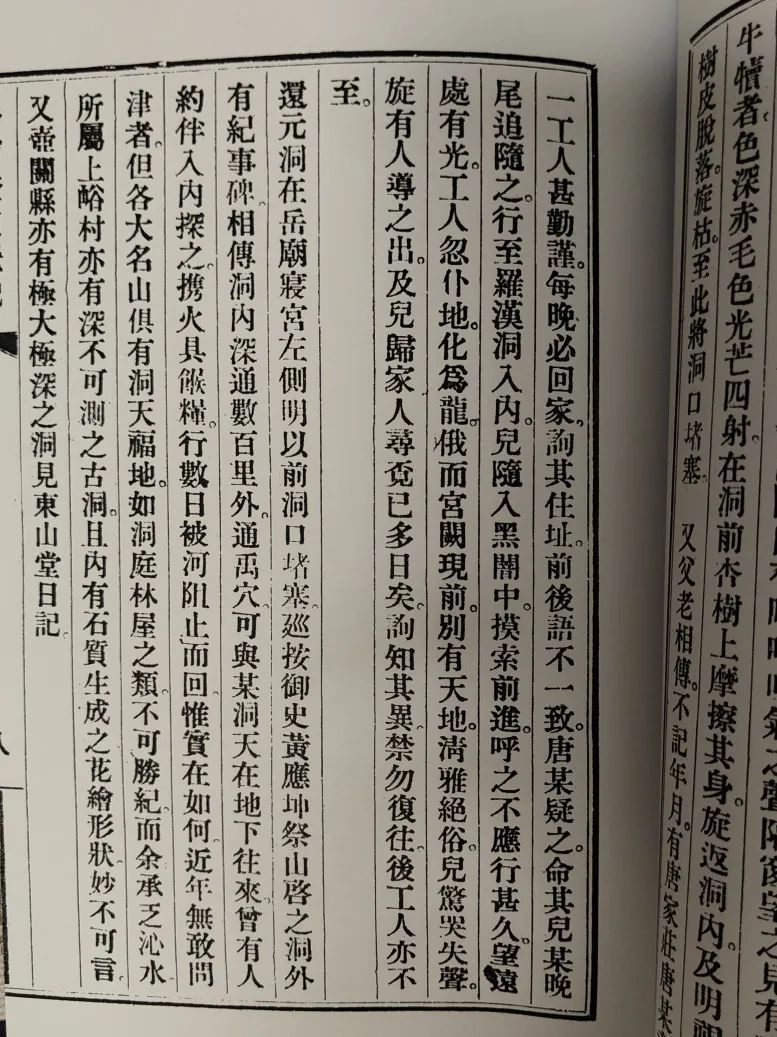 牛犢者。色深赤毛色光芒四射。在洞前杏樹上摩擦其身。旋返洞內。及明視
樹皮脫落。旋枯。至此將洞口堵塞。 又父老相傳。不記年月。有唐家莊唐某
一工人甚勤謹。每晚必回家。詢其住址。前後語不一致。唐某疑之。命其兒某晚
尾追隨之。行至羅漢洞入內。兒隨入黑闇中。摸索前進。呼之不應行甚久。望遠
處有光。工人忽仆地。化爲龍。俄而宮闕現前。別有天地。淸雅絕俗。兒驚哭失聲。
旋有人導之出。及兒歸家人尋覓已多日矣。詢知其異。禁勿復往。後工人亦不
至。
還元洞在岳廟寢宮左側明以前洞口堵塞。廵按御史黃應坤祭山啓之洞外
有紀事碑。相傳洞內深通數百里外。通禹穴。可與某洞天在地下往來。曾有人
約伴入內探之。携火具餱糧。行數日被河阻止而回。惟實在如何。近年無敢問
津者。但各大名山俱有洞天福地。如洞庭林屋之類。不可勝紀。而余承乏沁水
所屬上峪村亦有深不可測之古洞。且內有石質生成之花繪形狀。妙不可言
又壺關縣亦有極大極深之洞見東山堂日記。
八